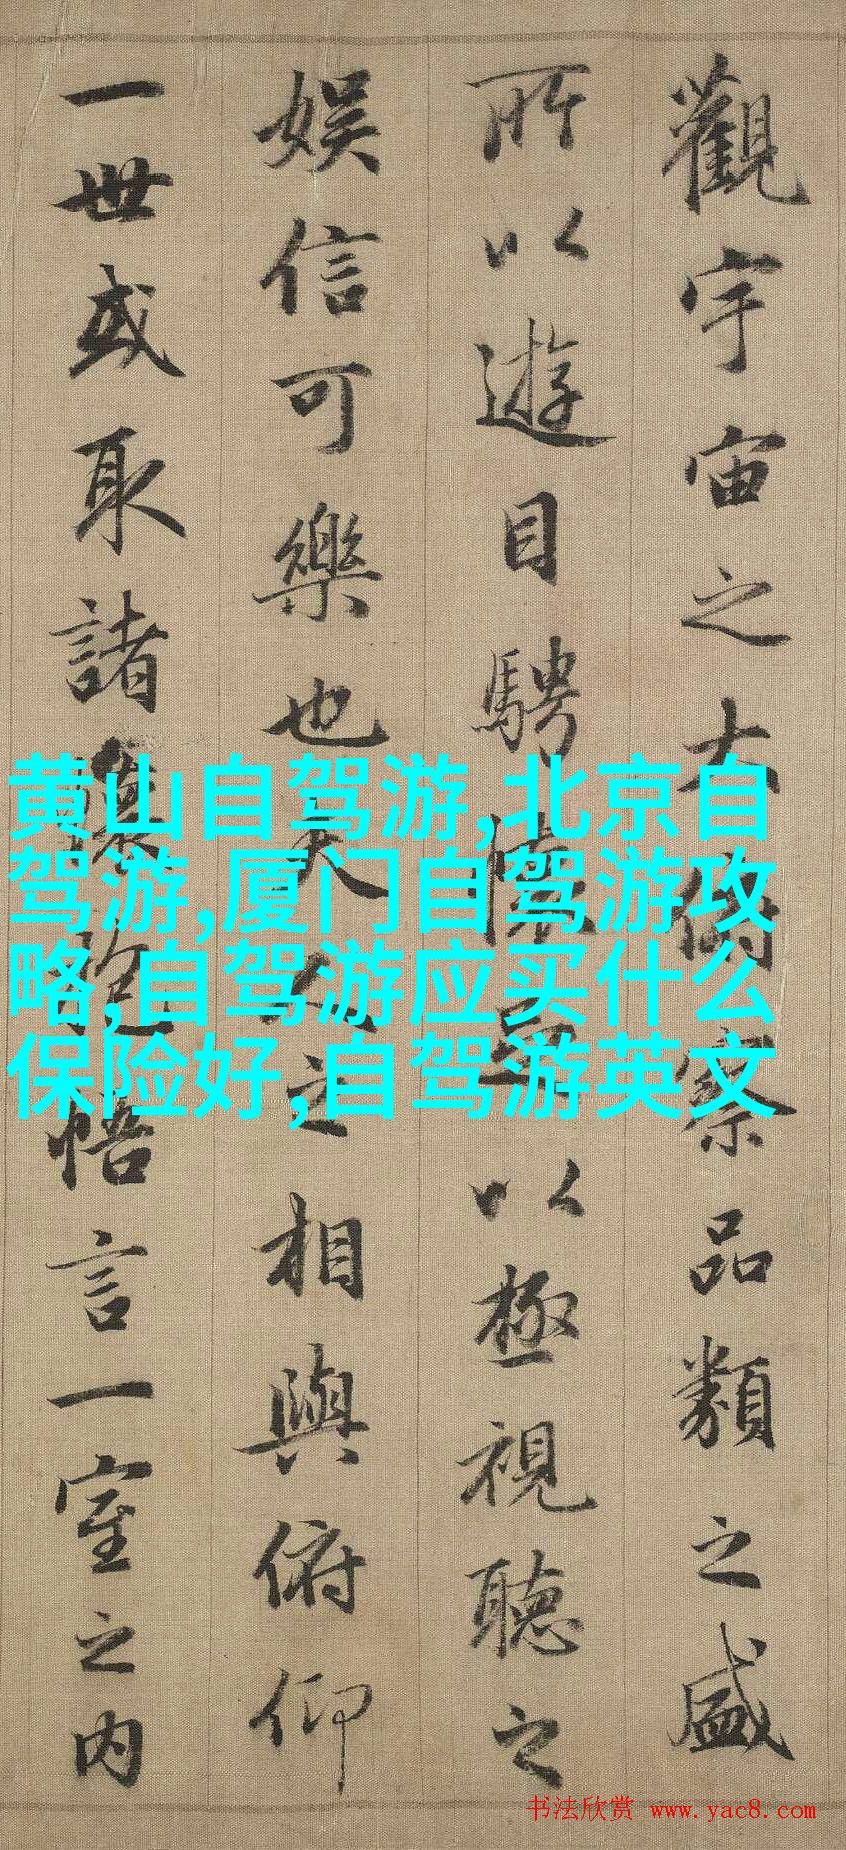 觀宇宙之大俯察品類之盛
所以遊目騁懷足以極視聽之
娛信可樂也夫人之相與俯仰
一世或取諸懷抱悟言一室之內
黄山自驾游,北京自
驾游,厦门自驾游攻
略,自驾游应买什么
保险好,自驾游英文
书法欣赏 www.yac8.com